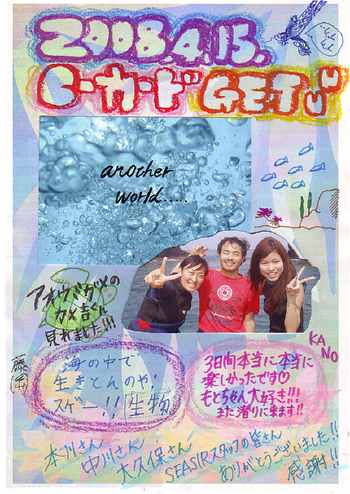 2008.4.15.
C-カード GET!!
another
world.....
アオウミガメの
カメ吉くん
見れました!!!
KANO
海の中で
生きとんのや!
スゲー!! 生物
3日間本当に本当に
楽しかったです♡
もとちゃん大好き!!!
また潜りに来ます!!
本川さん
中川さん
大久保さん
SEASIRスタッフの皆さん
ありがとうございました!!
感謝!!